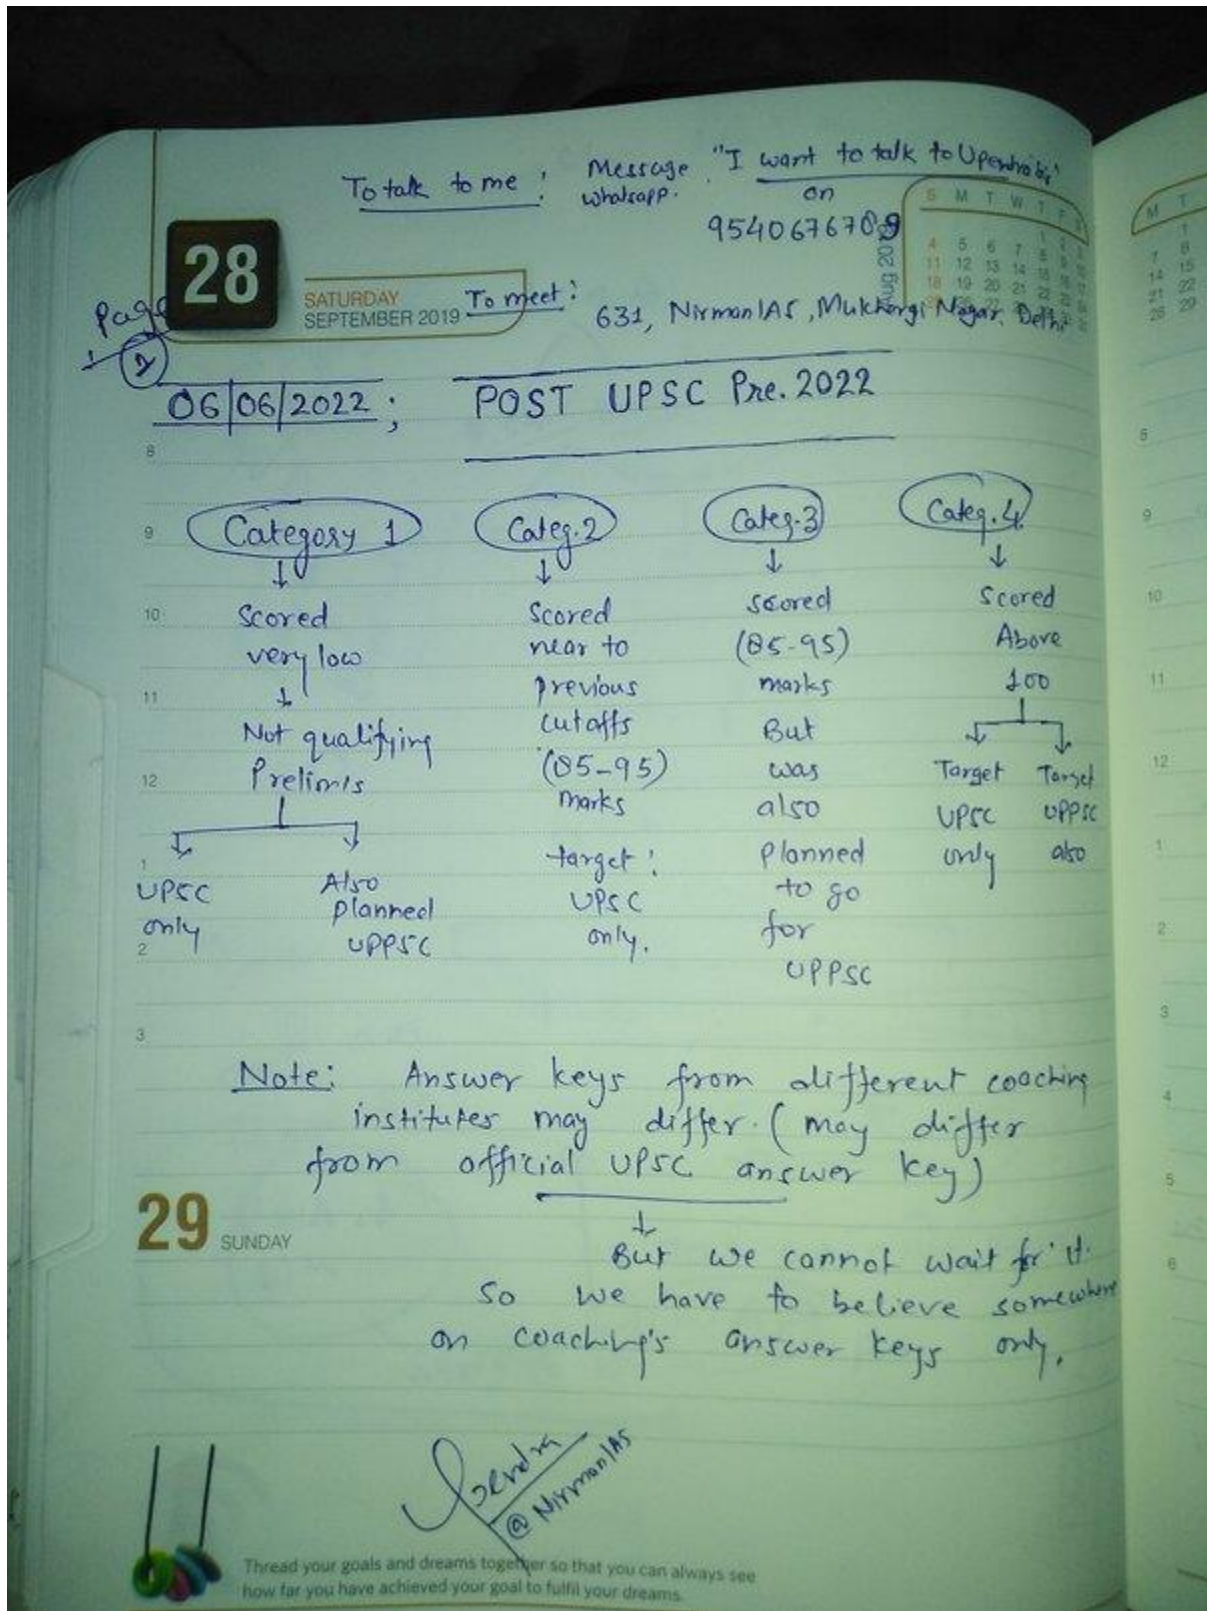 To talk to me : Message "I want to talk to Upendra sir"
whatsapp. on
9540676789
28
SATURDAY
SEPTEMBER 2019
To meet :
631, NirmanIAS, Mukherji Nagar, Delhi
Page
1
2
S M T W T F S
Aug 2019
06/06/2022 ; POST UPSC Pre. 2022
Category 1
Scored
very low
Not qualifying
Prelims
UPSC
only
Also
planned
UPPSC
Categ. 2
Scored
near to
previous
cutoffs
(85-95)
marks
target :
UPSC
only.
Categ. 3
Scored
(85-95)
marks
But
was
also
planned
to go
for
UPPSC
Categ. 4
Scored
Above
100
Target
UPSC
only
Target
UPPSC
also
8
9
10
11
12
1
2
3
Note: Answer keys from different coaching
institutes may differ. (may differ
from official UPSC answer key)
29 SUNDAY
But we cannot wait for it.
So we have to believe somewhere
on coaching's answer keys only.
Upendra
@NirmanIAS
Thread your goals and dreams together so that you can always see
how far you have achieved your goal to fulfil your dreams.